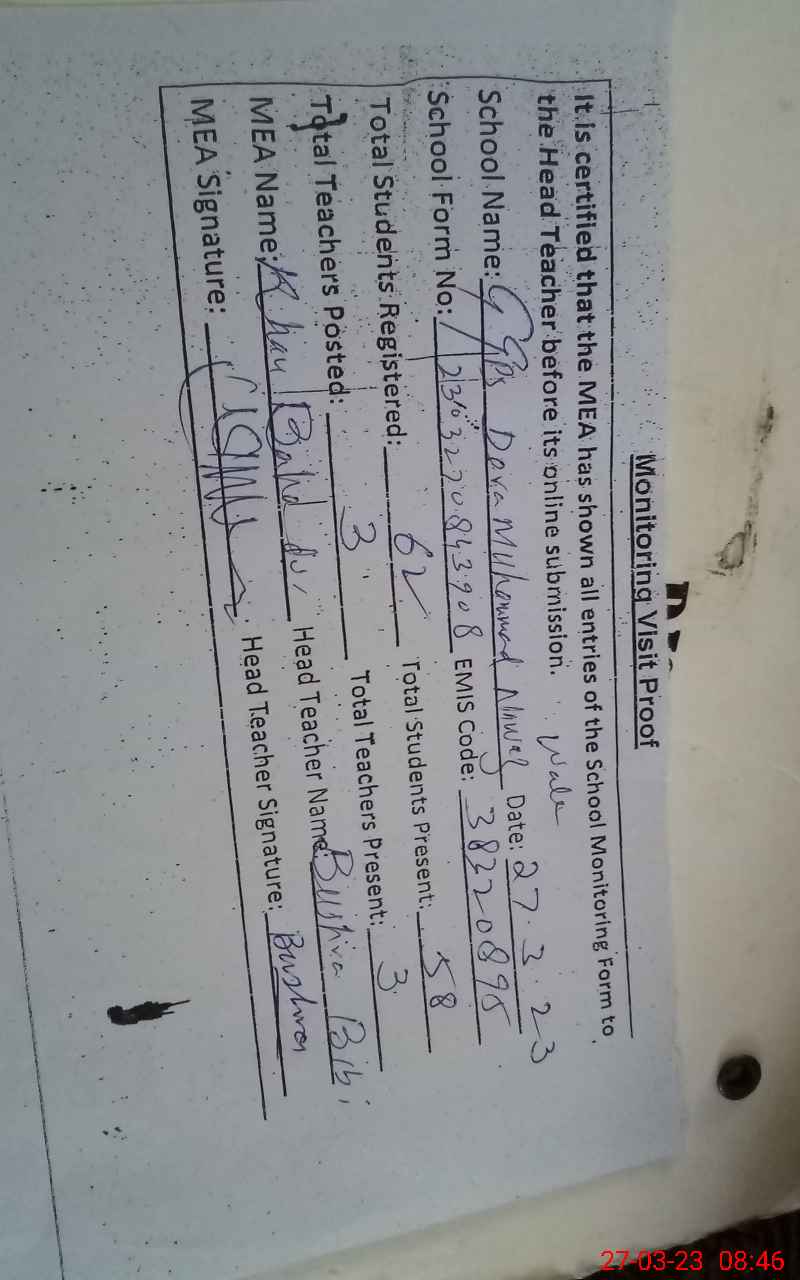 Monitoring Visit Proof
It is certified that the MEA has shown all entries of the School Monitoring Form to
the Head Teacher before its online submission. Wala
School Name: GGPS Dera Muhammad Nawaz Date: 27.3.23
School Form No: 12310327084 3908 EMIS Code: 38320895
Total Students Registered: 62 Total Students Present: 58
Total Teachers Posted: 3 Total Teachers Present: 3
MEA Name: Khan Bahadur Head Teacher Name: Bushra Bibi
MEA Signature: Head Teacher Signature: Bushra
27-03-23 08:46